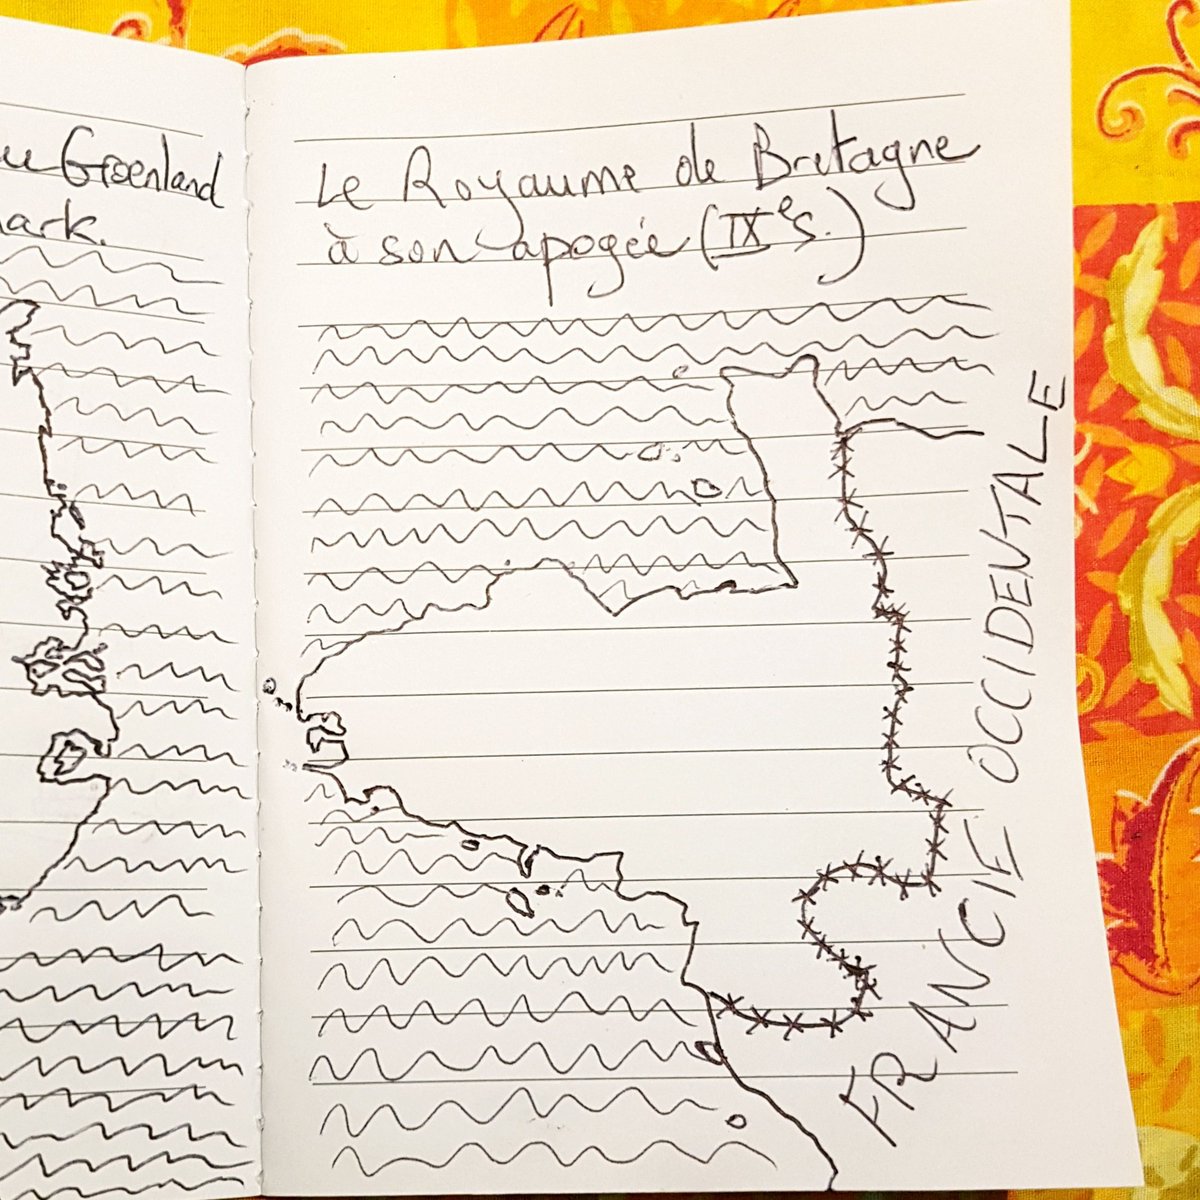 Groenland
Le Royaume de Bretagne
à son apogée (IXe s.)
FRANCIE OCCIDENTALE